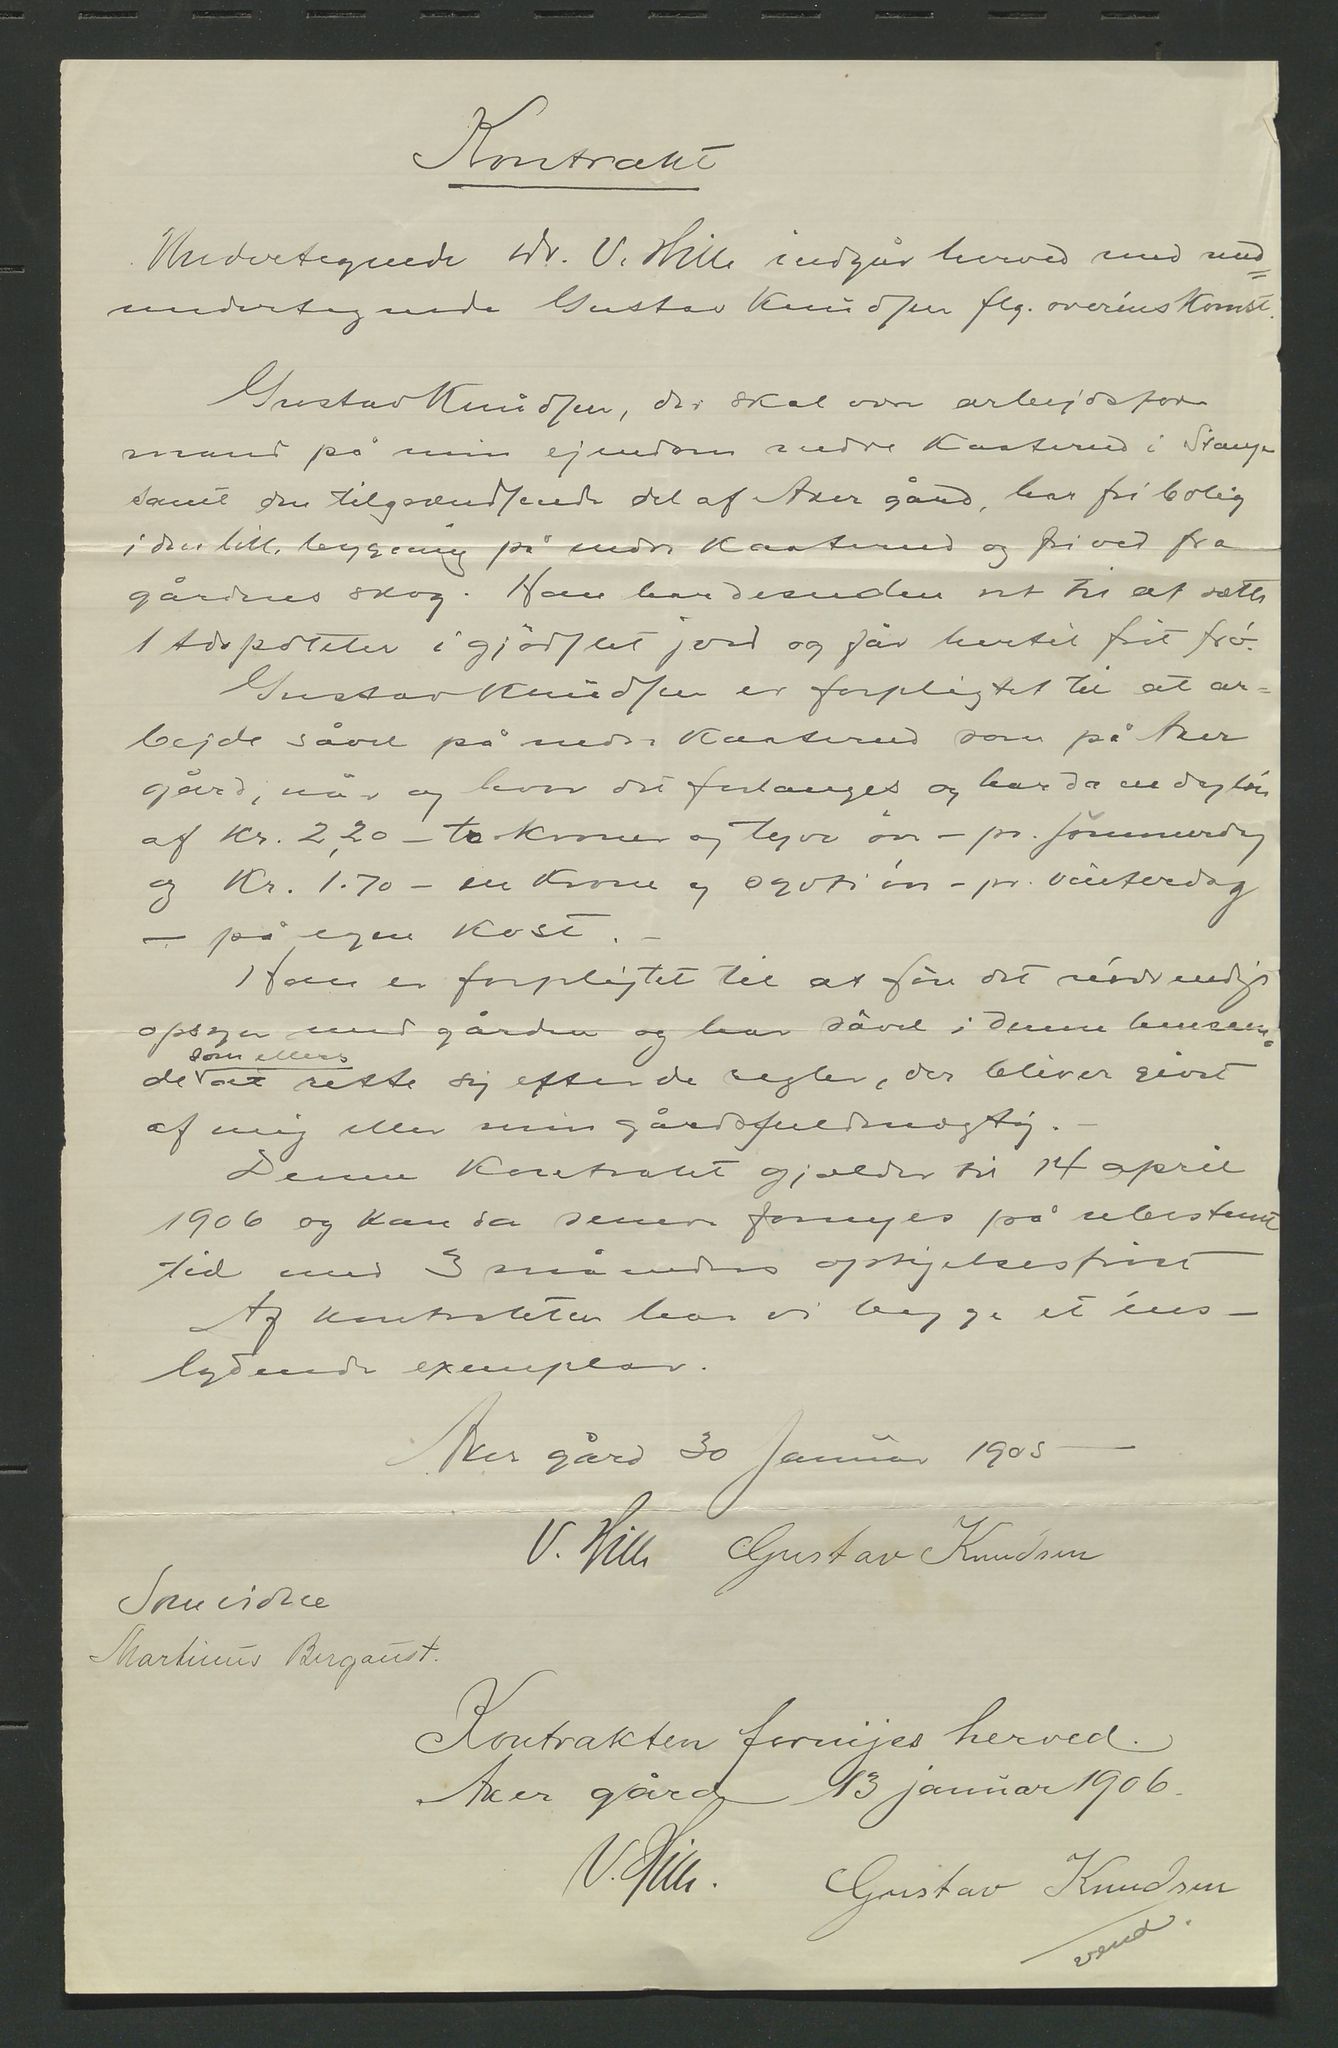 Kontrakt
Undertegnede Dr. V. Hille indgår herved med med=
undertegnede Gustav Knudsen flg. overenskomst.
Gustav Knudsen, der skal være arbejdsfor
mand på min ejendom nedre Kaaterud i Stange
samt den tilgrændsende del af Aker gård, har fri bolig
i den lille bygning på nedre Kaaterud og fri ved fra
gårdens skog. Han har desuden ret til at sætte
1 tde poteter i gjødslet jord og får hertil frit frø.
Gustav Knudsen er forpligtet til at ar-
bejde såvel på nedre Kaaterud som på Aker
gård, når og hvor det forlanges og har da en dagløn
af Kr. 2,20 – to kroner og tyve øre – pr. sommerdag
og Kr. 1.70 – en krone og sytti øre – pr. vinterdag
– på egen kost. –
Han er forpligtet til at føre det nødvendige
opsyn med gården og har såvel i denne henseen-
som ellers
de at rette sig efter de regler, der bliver givet
af mig eller min gårdsfuldmægtig. –
Denne kontrakt gjælder til 14 april
1906 og kan da senere fornyes på ubestemt
tid med 3 måneders opsigelsesfrist
Af kontrakten har vi begge et ens-
lydende exemplar.
Aker gård 30 Januar 1905
V. Hille Gustav Knudsen
Som vidne
Martinus Bergaust.
Kontrakten fornijes herved.
Aker gård 13 januar 1906.
V. Hille. Gustav Knudsen
vend.